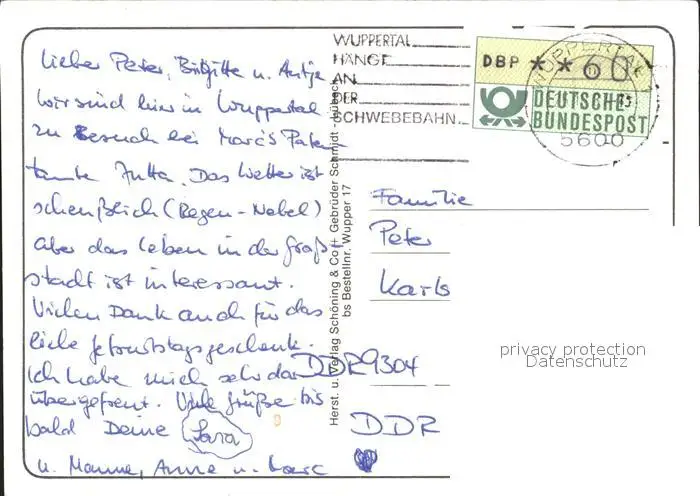 Lieber Peter, Birgitte u. Antje
wir sind hier in Wuppertal
zu Besuch bei Marc's Paten
tante Jutta. Das Wetter ist
scheußlich (Regen-Nebel)
aber das Leben in der Groß-
stadt ist interessant.
Vielen Dank auch für das
liebe Geburtstagsgeschenk.
Ich habe mich sehr
übergefreut. Viele Grüße bis
bald Deine Sara
u. Manne, Anne u. Marc
WUPPERTAL
HÄNGE
AN
DER
SCHWEBEBAHN
DBP **60
DEUTSCHE
BUNDESPOST
WUPPERTAL
5600
Herst. u. Verlag Schöning & Co + Gebrüder Schmidt - Lübeck
bs Bestellnr. Wupper 17
Familie
Peter
Karls
DDR 9304
DDR
privacy protection
Datenschutz